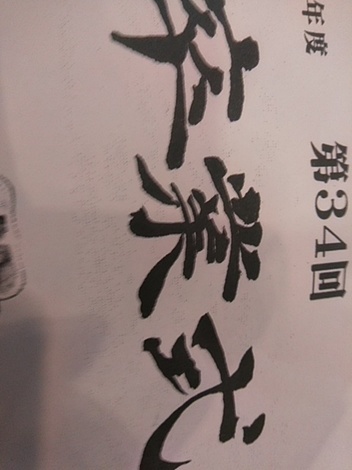 年度
第34回
卒業式